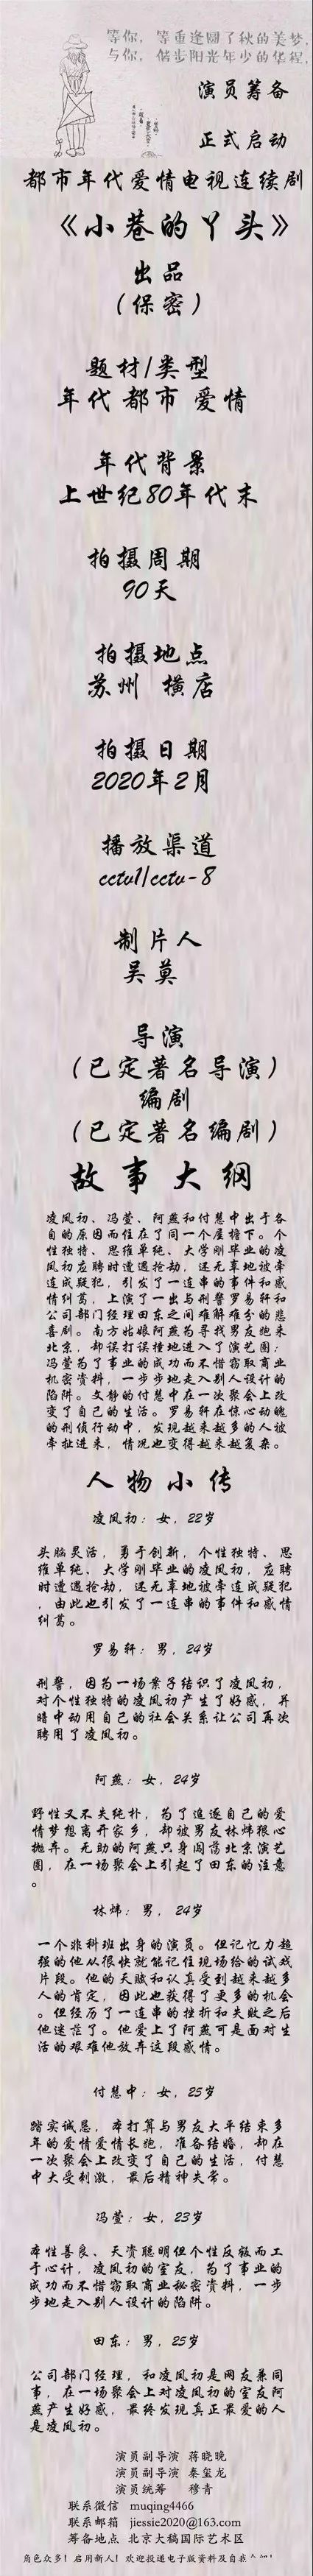 等你，等重逢圆了秋的美梦，
与你，偕步阳光年少的华程，
演员筹备
正式启动
都市年代爱情电视连续剧
《小巷的丫头》
出品
（保密）
题材/类型
年代 都市 爱情
年代背景
上世纪80年代末
拍摄周期
90天
拍摄地点
苏州 横店
拍摄日期
2020年2月
播放渠道
cctv1/cctv-8
制片人
吴莫
导演
（已定著名导演）
编剧
（已定著名编剧）
故事大纲
凌凤初、冯萱、阿燕和付慧中出于各
自的原因而住在了同一个屋檐下。个
性独特、思维单纯、大学刚毕业的凌
凤初应聘时遭遇抢劫，还无辜地被牵
连成疑犯，引发了一连串的事件和感
情纠葛，上演了一出与刑警罗易轩和
公司部门经理田东之间难解难分的悲
喜剧。南方姑娘阿燕为寻找男友跑来
北京，却误打误撞地进入了演艺圈；
冯萱为了事业的成功而不惜窃取商业
机密资料，一步步地走入别人设计的
陷阱。文静的付慧中在一次聚会上改
变了自己的生活。罗易轩在惊心动魄
的刑侦行动中，发现越来越多的人被
牵扯进来，情况也变得越来越复杂。
人物小传
凌凤初：女，22岁
头脑灵活，勇于创新，个性独特、思
维单纯、大学刚毕业的凌凤初，应聘
时遭遇抢劫，还无辜地被牵连成疑犯
，由此也引发了一连串的事件和感情
纠葛。
罗易轩：男，24岁
刑警，因为一场案子结识了凌凤初，
对个性独特的凌凤初产生了好感，并
暗中动用自己的社会关系让公司再次
聘用了凌凤初。
阿燕：女，24岁
野性又不失纯朴，为了追逐自己的爱
情梦想离开家乡，却被男友林炜狠心
抛弃。无助的阿燕只身闯荡北京演艺
圈，在一场聚会上引起了田东的注意
。
林炜：男，24岁
一个非科班出身的演员。但记忆力超
强的他从很快就能记住现场给的试戏
片段。他的天赋和认真受到越来越多
人的肯定，因此也获得了更多的机会
。但经历了一连串的挫折和失败之后
他迷茫了。他爱上了阿燕可是面对生
活的艰难他放弃这段感情。
付慧中：女，25岁
踏实诚恳，本打算与男友大平结束多
年的爱情爱情长跑，准备结婚，却在
一次聚会上改变了自己的生活，付慧
中大受刺激，最后精神失常。
冯萱：女，23岁
本性善良、天资聪明但个性反叛而工
于心计，凌凤初的室友，为了事业的
成功而不惜窃取商业秘密资料，一步
步地走入别人设计的陷阱。
田东：男，25岁
公司部门经理，和凌凤初是网友兼同
事，在一场聚会上对凌凤初的室友阿
燕产生好感，最终发现真正最爱的人
是凌凤初。
演员副导演 蒋晓晚
演员副导演 秦玺龙
演员统筹 穆青
联系微信 muqing4466
联系邮箱 jiessie2020@163.com
筹备地点 北京大稿国际艺术区
角色众多！启用新人！欢迎投递电子版资料及自我